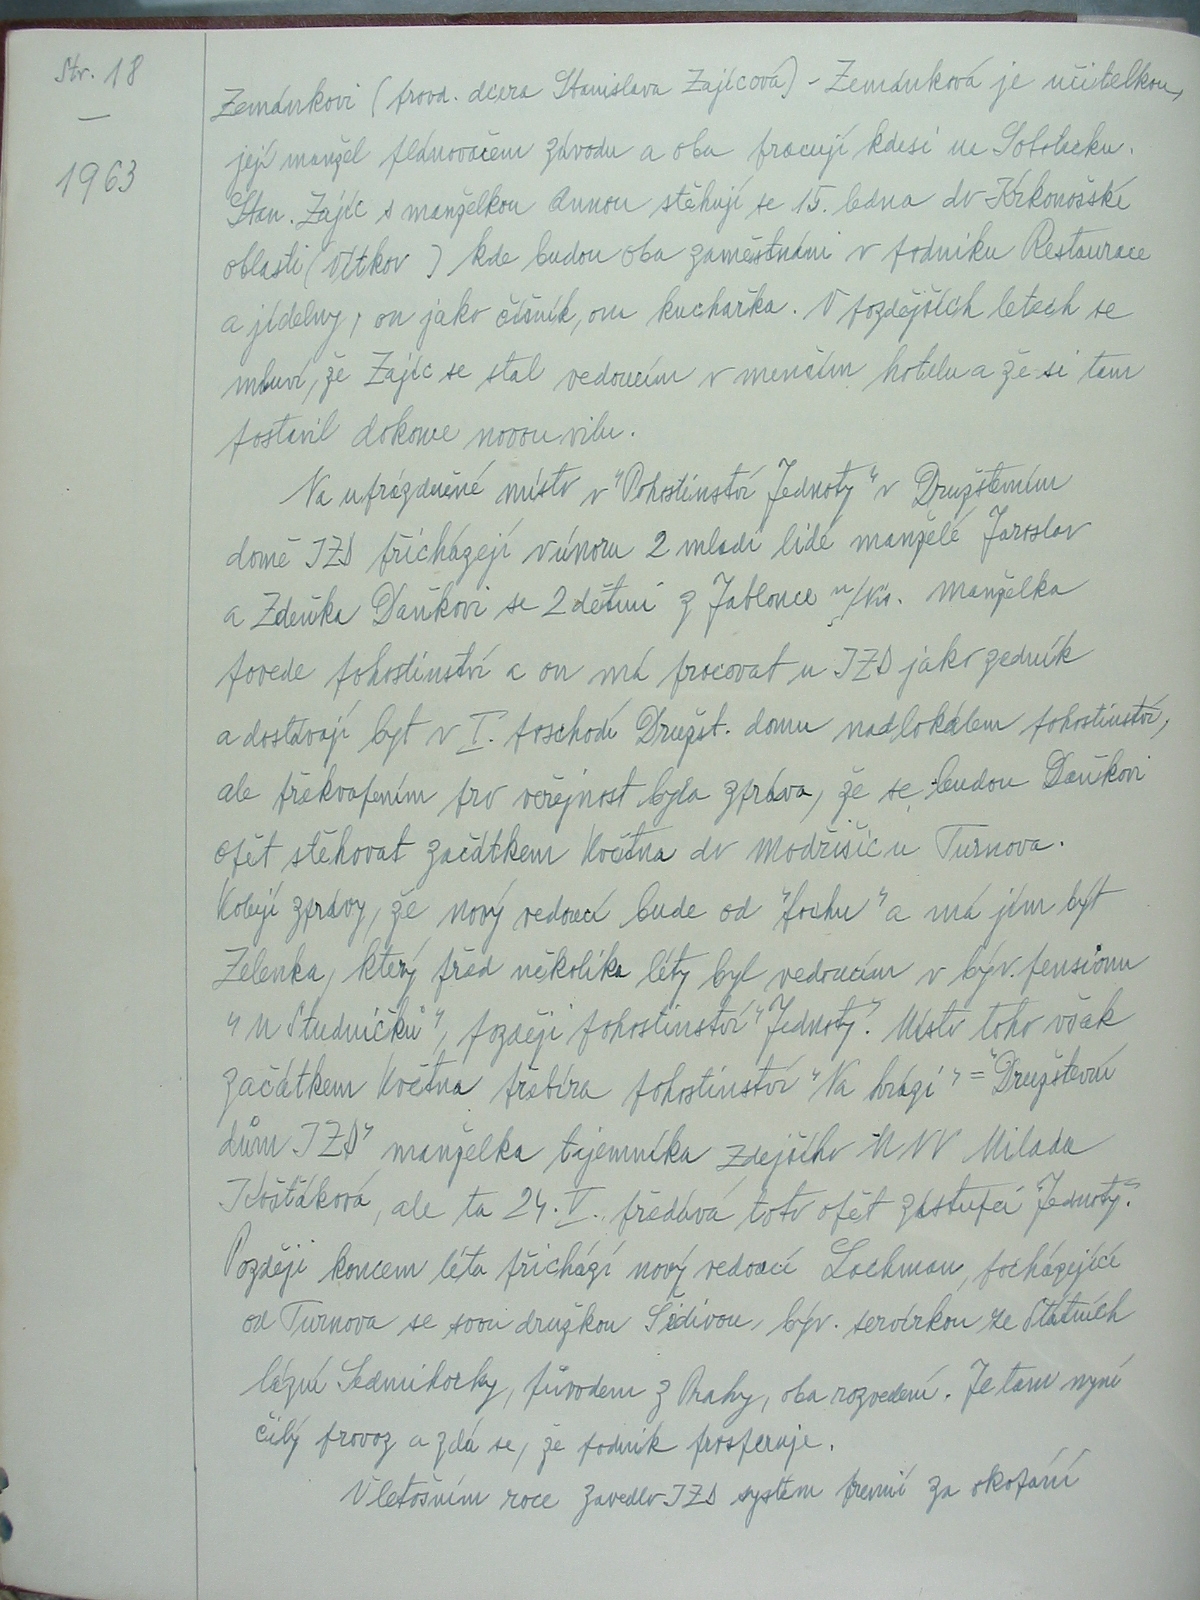 Str. 18
—
1963
Zemánkovi (provd. dcera Stanislava Zajícová) - Zemánková je učitelkou,
její manžel plánovačem závodu a oba pracují kdesi na Sobotecku.
Stan. Zajíc s manželkou Annou stěhují se 15. ledna do Krkonošské
oblasti (Vítkov ) kde budou oba zaměstnáni v podniku Restaurace
a jídelny, on jako číšník, ona kuchařka. V pozdějších letech se
mluví, že Zajíc se stal vedoucím v menším hotelu a že si tam
postavil dokonce novou vilu.
Na uprázdněné místo v "Pohostinství Jednoty" v Družstevním
domě JZD přicházejí v únoru 2 mladí lidé manželé Jaroslav
a Zdeňka Daňkovi se 2 dětmi z Jablonce n/Nis. Manželka
povede pohostinství a on má pracovat u JZD jako zedník
a dostávají byt v I. poschodí Družst. domu nad lokálem pohostinství,
ale překvapením pro veřejnost byla zpráva, že se budou Daňkovi
opět stěhovat začátkem května do Modřišic u Turnova.
Kolují zprávy, že nový vedoucí bude od "fochu" a má jím být
Zelenka, který před několika léty byl vedoucím v býv. pensionu
"U Studničků", později pohostinství "Jednoty". Místo toho však
začátkem května přebírá pohostinství "Na hrázi" = "Družstevní
dům JZD" manželka tajemníka zdejšího MNV Milada
Košťáková, ale ta 24. V. předává toto opět zástupci "Jednoty".
Později koncem léta přichází nový vedoucí Lochman, pocházející
od Turnova se svou družkou Šedivou, býv. servírkou ze Státních
lázní Sedmihorky, původem z Prahy, oba rozvedení. Je tam nyní
čilý provoz a zdá se, že podnik prosperuje.
V letošním roce zavedlo JZD systém premií za okopání